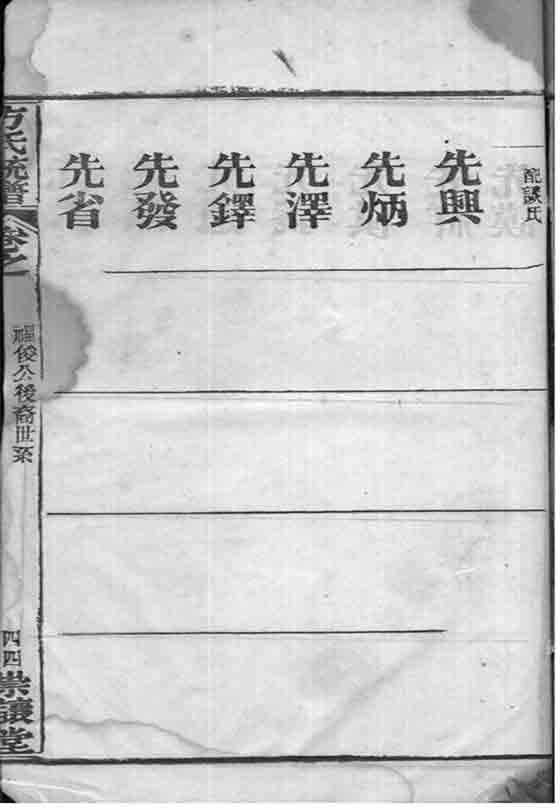 配談氏
先興
先炳
先澤
先鐸
先發
先省
方氏統譜
卷之一
俊公後裔世系
四四
崇讓堂